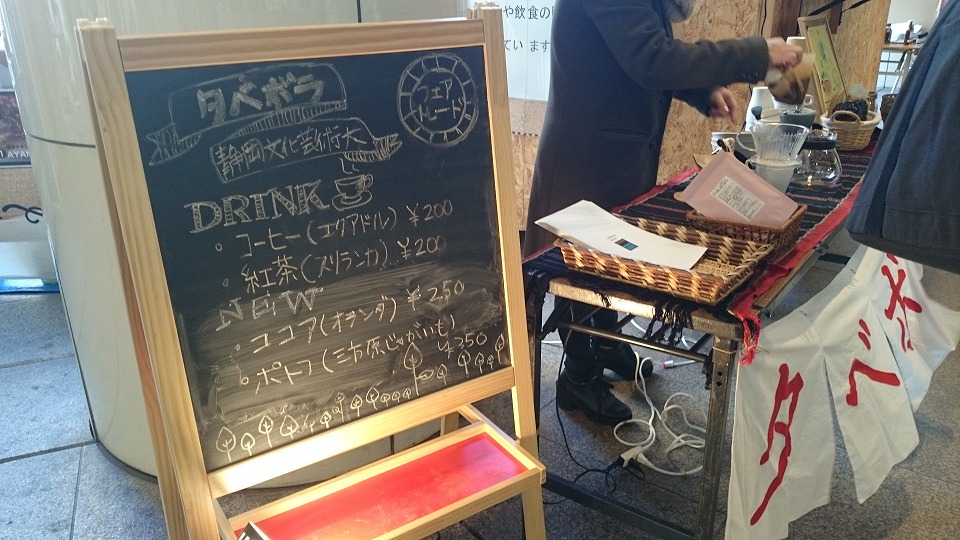 タベボラ
フェア
トレード
静岡文化芸術大
DRINK
・コーヒー(エクアドル) ¥200
・紅茶(スリランカ) ¥200
NEW
・ココア(オランダ) ¥250
・ポトフ(三方原じゃがいも) ¥350
や飲食の
てい ます
タベボ